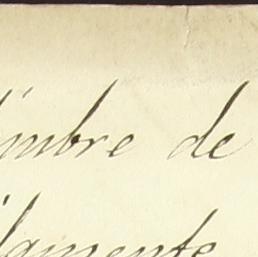 imbre de
lamente